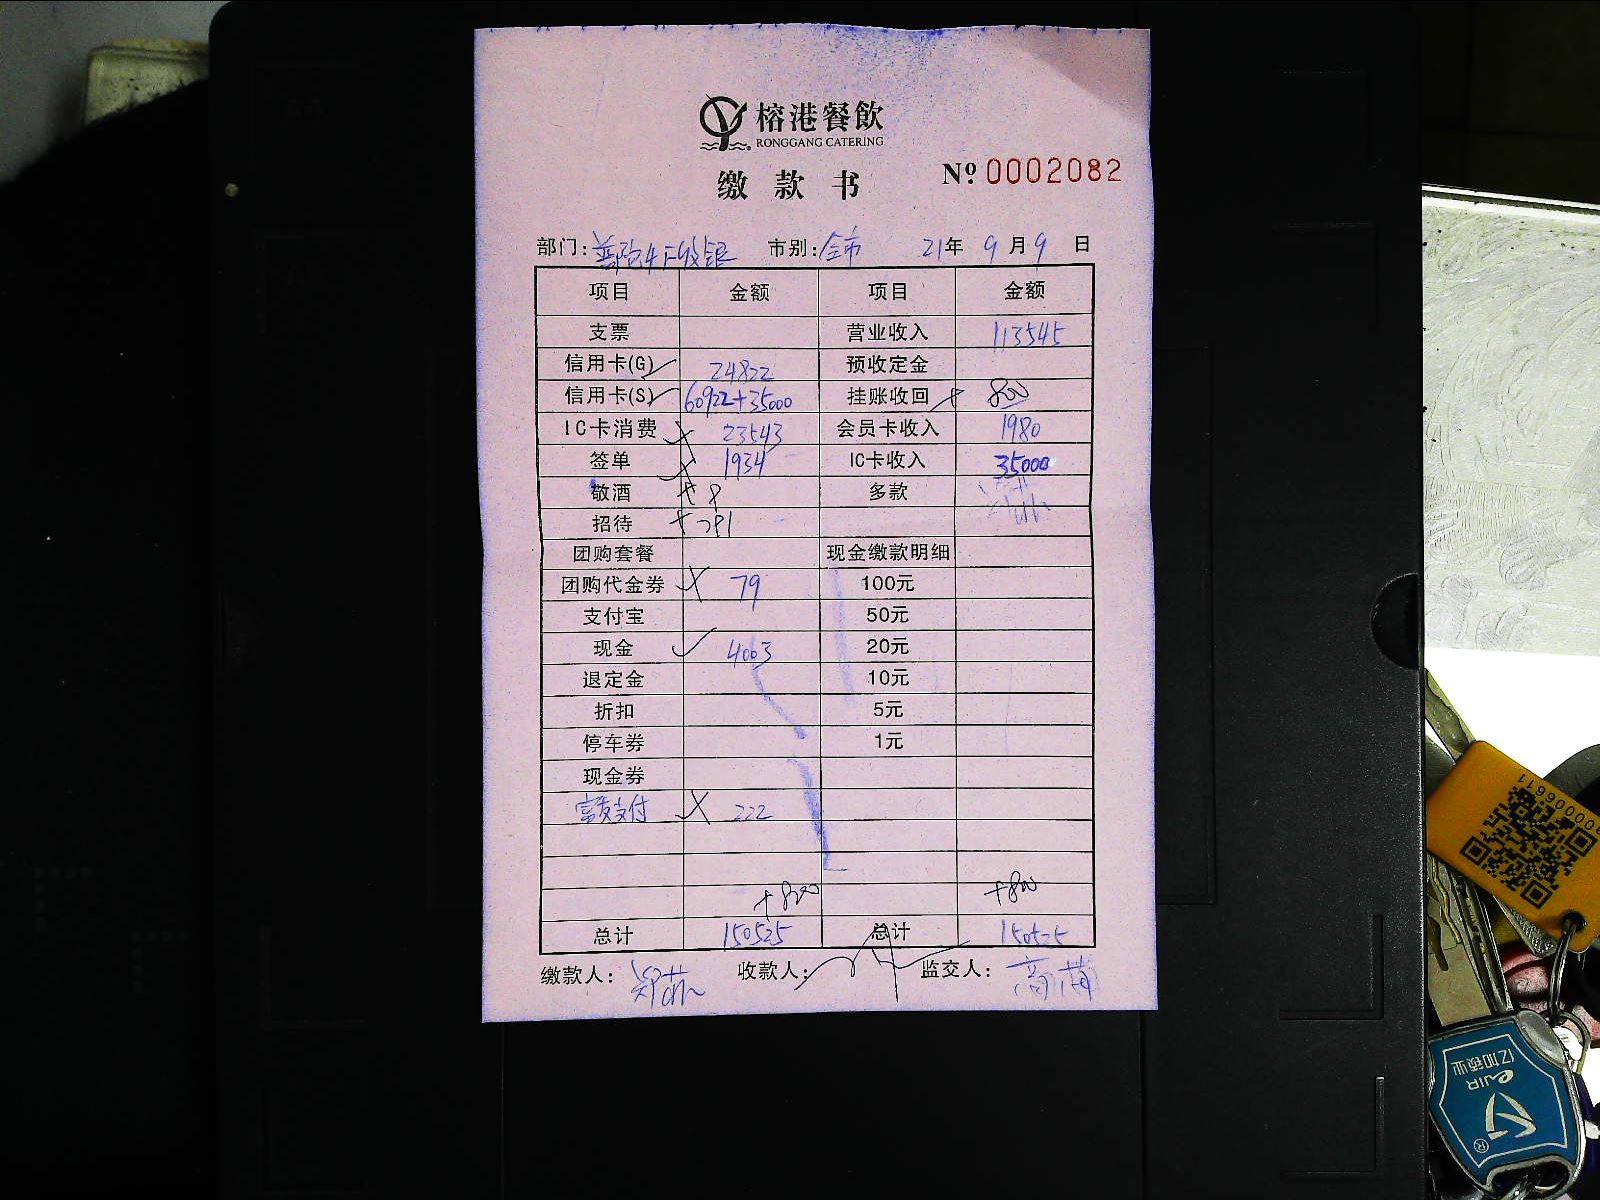 榕港餐飲
RONGGANG CATERING
缴款书
Nº 0002082
部门: 市别:全市 21年 9月9日
项目 金额 项目 金额
支票 营业收入 113545
信用卡(G) 24822 预收定金
信用卡(S) 60922+35000 挂账收回 + 800
IC卡消费 23543 会员卡收入 1980
签单 1934 IC卡收入 35000
敬酒 多款
招待
团购套餐 现金缴款明细
团购代金券 79 100元
支付宝 50元
现金 4003 20元
退定金 10元
折扣 5元
停车券 1元
现金券
支付 222
+800 +800
总计 150525 总计 150525
缴款人: 收款人: 监交人:
00006611
亿加锁业
eJIR
®